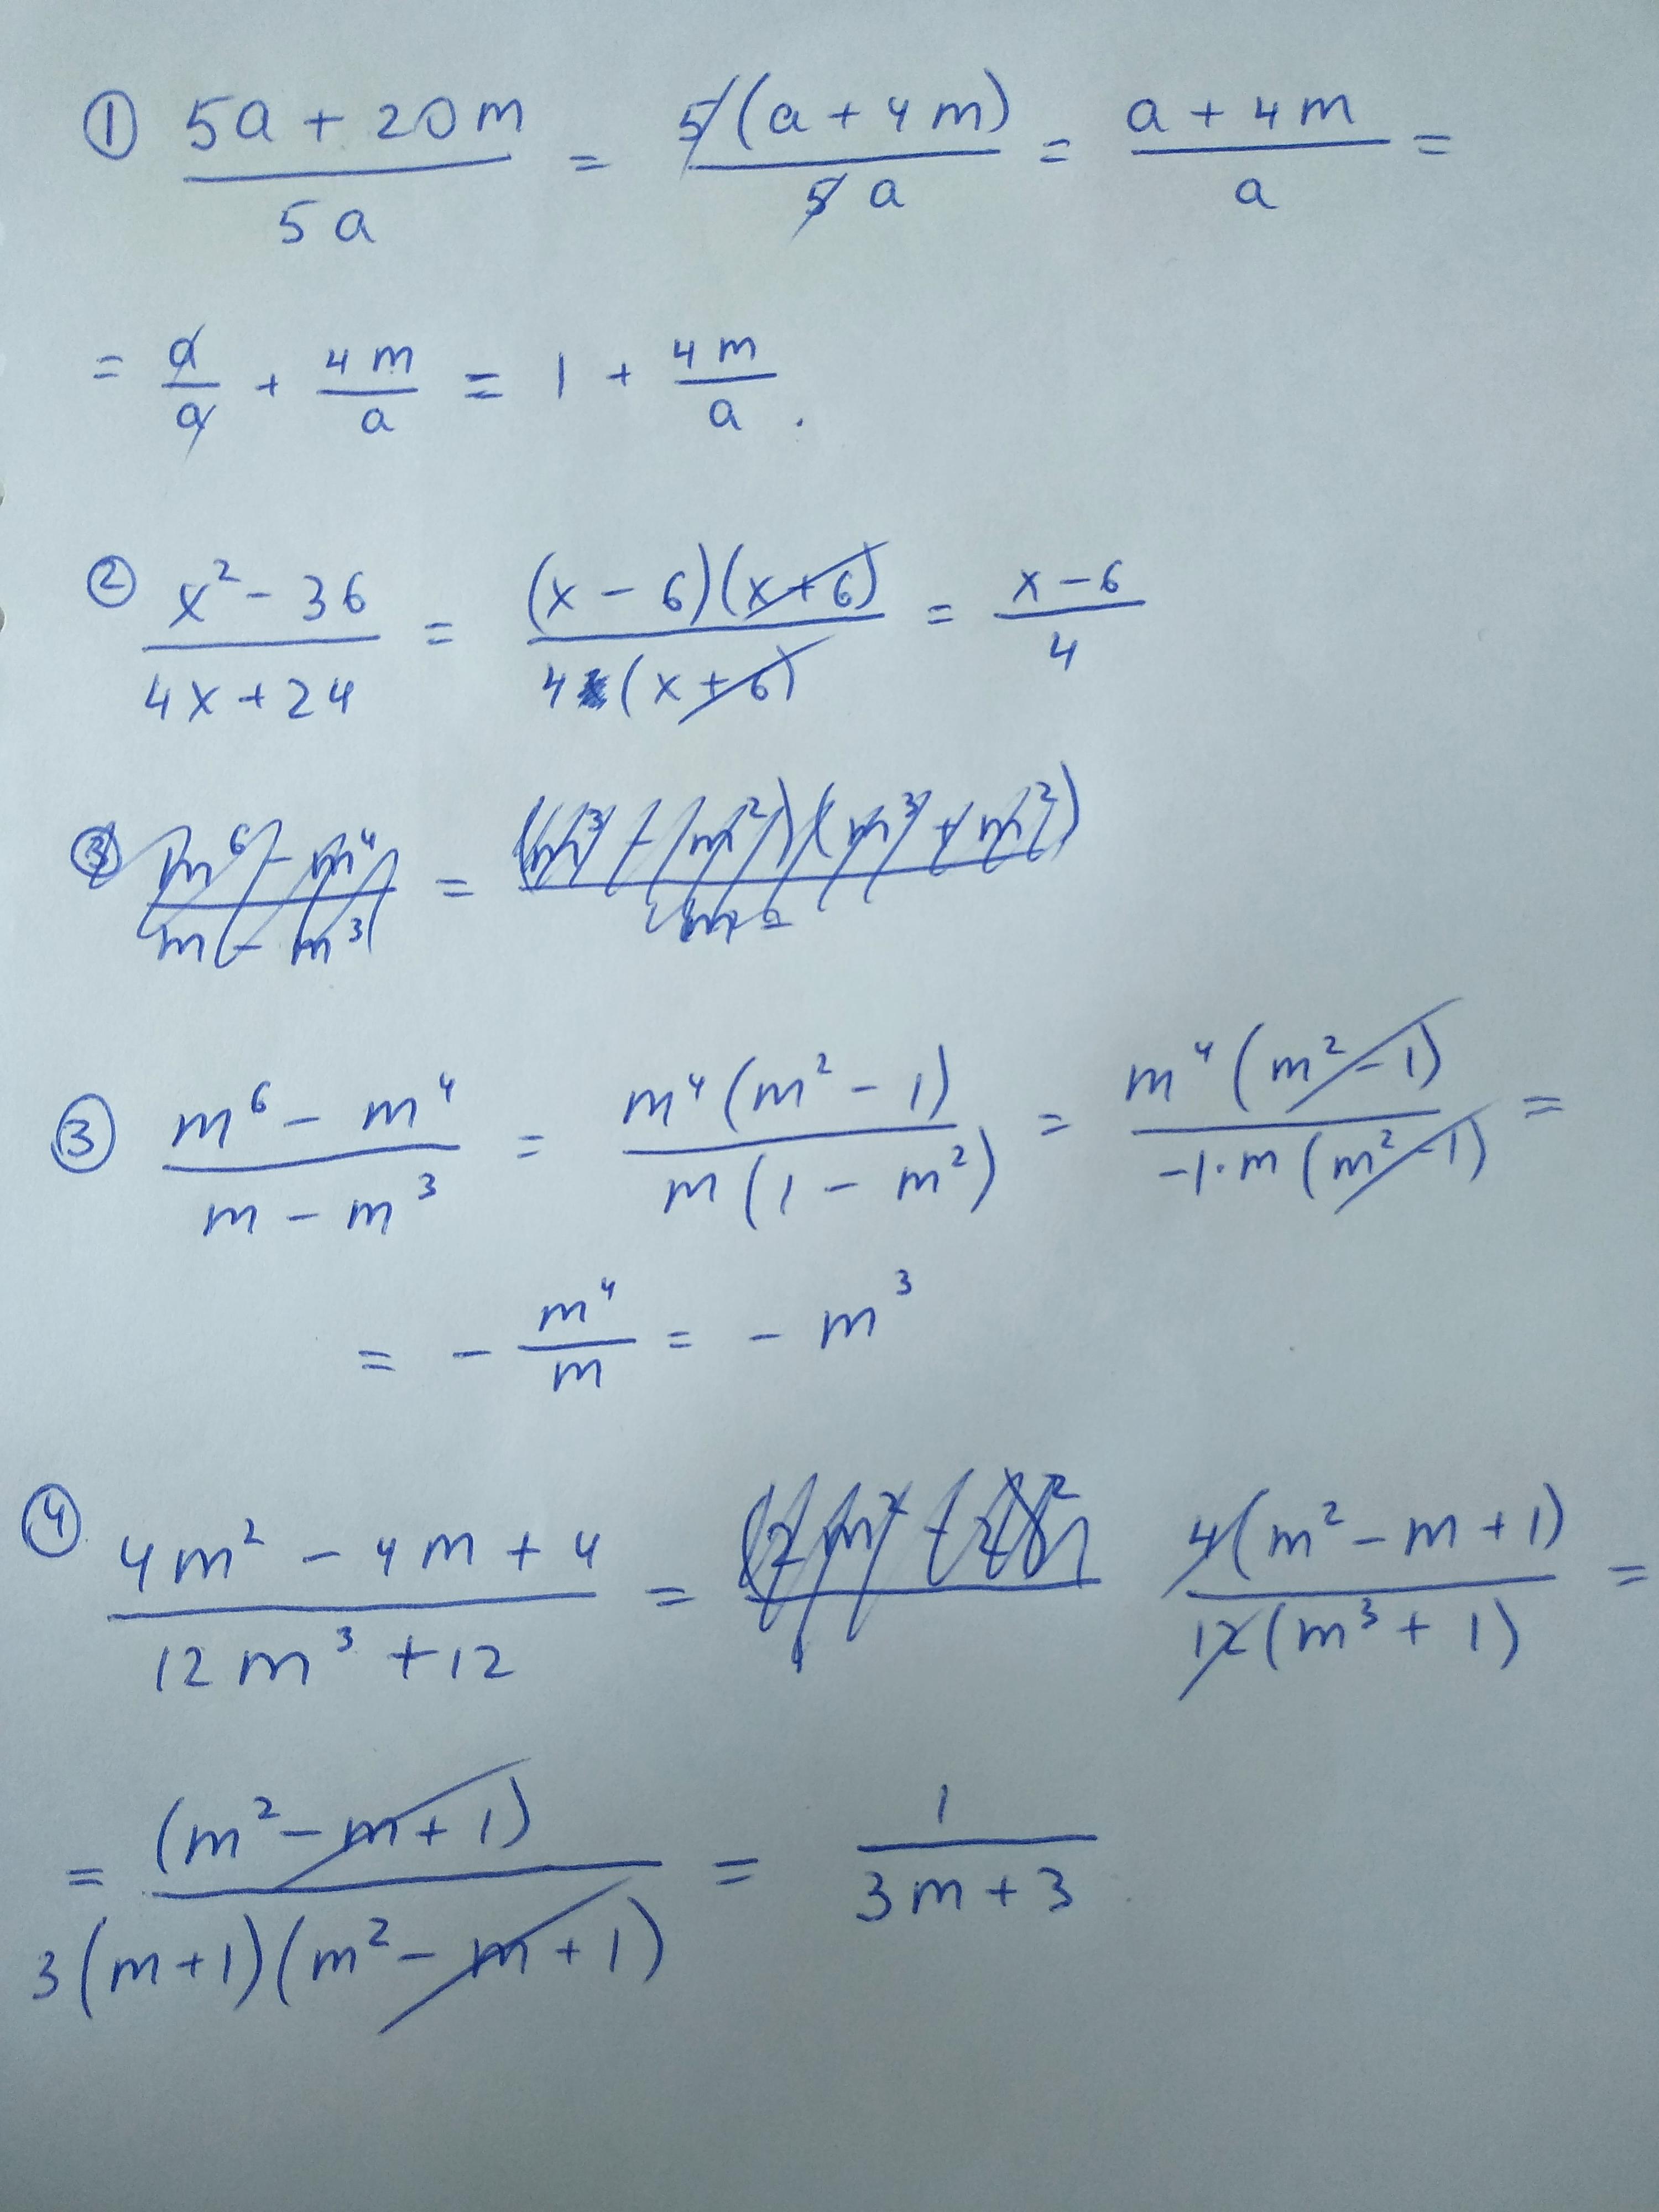 ① (5a + 20m)/(5a) = (5(a + 4m))/(5a) = (a + 4m)/a =
= a/a + 4m/a = 1 + 4m/a .
② (x² - 36)/(4x + 24) = ((x - 6)(x + 6))/(4(x + 6)) = (x - 6)/4
③ (m⁶ - m⁴)/(m - m³) = ((m³ - m²)(m³ + m²))/
③ (m⁶ - m⁴)/(m - m³) = (m⁴(m² - 1))/(m(1 - m²)) = (m⁴(m² - 1))/(-1·m(m² - 1)) =
= - m⁴/m = - m³
④ (4m² - 4m + 4)/(12m³ + 12) = (4(m² - m + 1))/(12(m³ + 1)) =
= (m² - m + 1)/(3(m + 1)(m² - m + 1)) = 1/(3m + 3)